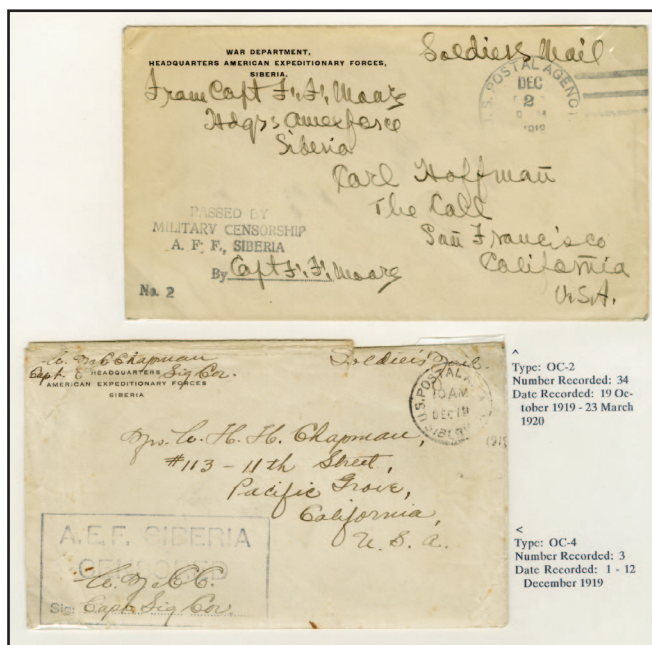 WAR DEPARTMENT,
HEADQUARTERS AMERICAN EXPEDITIONARY FORCES,
SIBERIA.
Soldiers Mail
U.S. POSTAL AGENCY
DEC
2
1919
From Capt F. F. Moore
Hdqrs Amexforce
Siberia
Carl Hoffman
The Call
San Francisco
California
U.S.A.
PASSED BY
MILITARY CENSORSHIP
A. E. F., SIBERIA
By Capt F. F. Moore
No. 2
Chapman
Capt. Sig Cor.
HEADQUARTERS
AMERICAN EXPEDITIONARY FORCES
SIBERIA
Soldier's Mail.
U.S. POSTAL
10 AM
DEC
SIBERIA
Mrs. W. H. H. Chapman,
#113 - 11th Street,
Pacific Grove,
California,
U. S. a.
A.E.F. SIBERIA
CENSORED
Sig: Capt Sig Cor.
^
Type: OC-2
Number Recorded: 34
Date Recorded: 19 Oc-
tober 1919 - 23 March
1920
<
Type: OC-4
Number Recorded: 3
Date Recorded: 1 - 12
December 1919